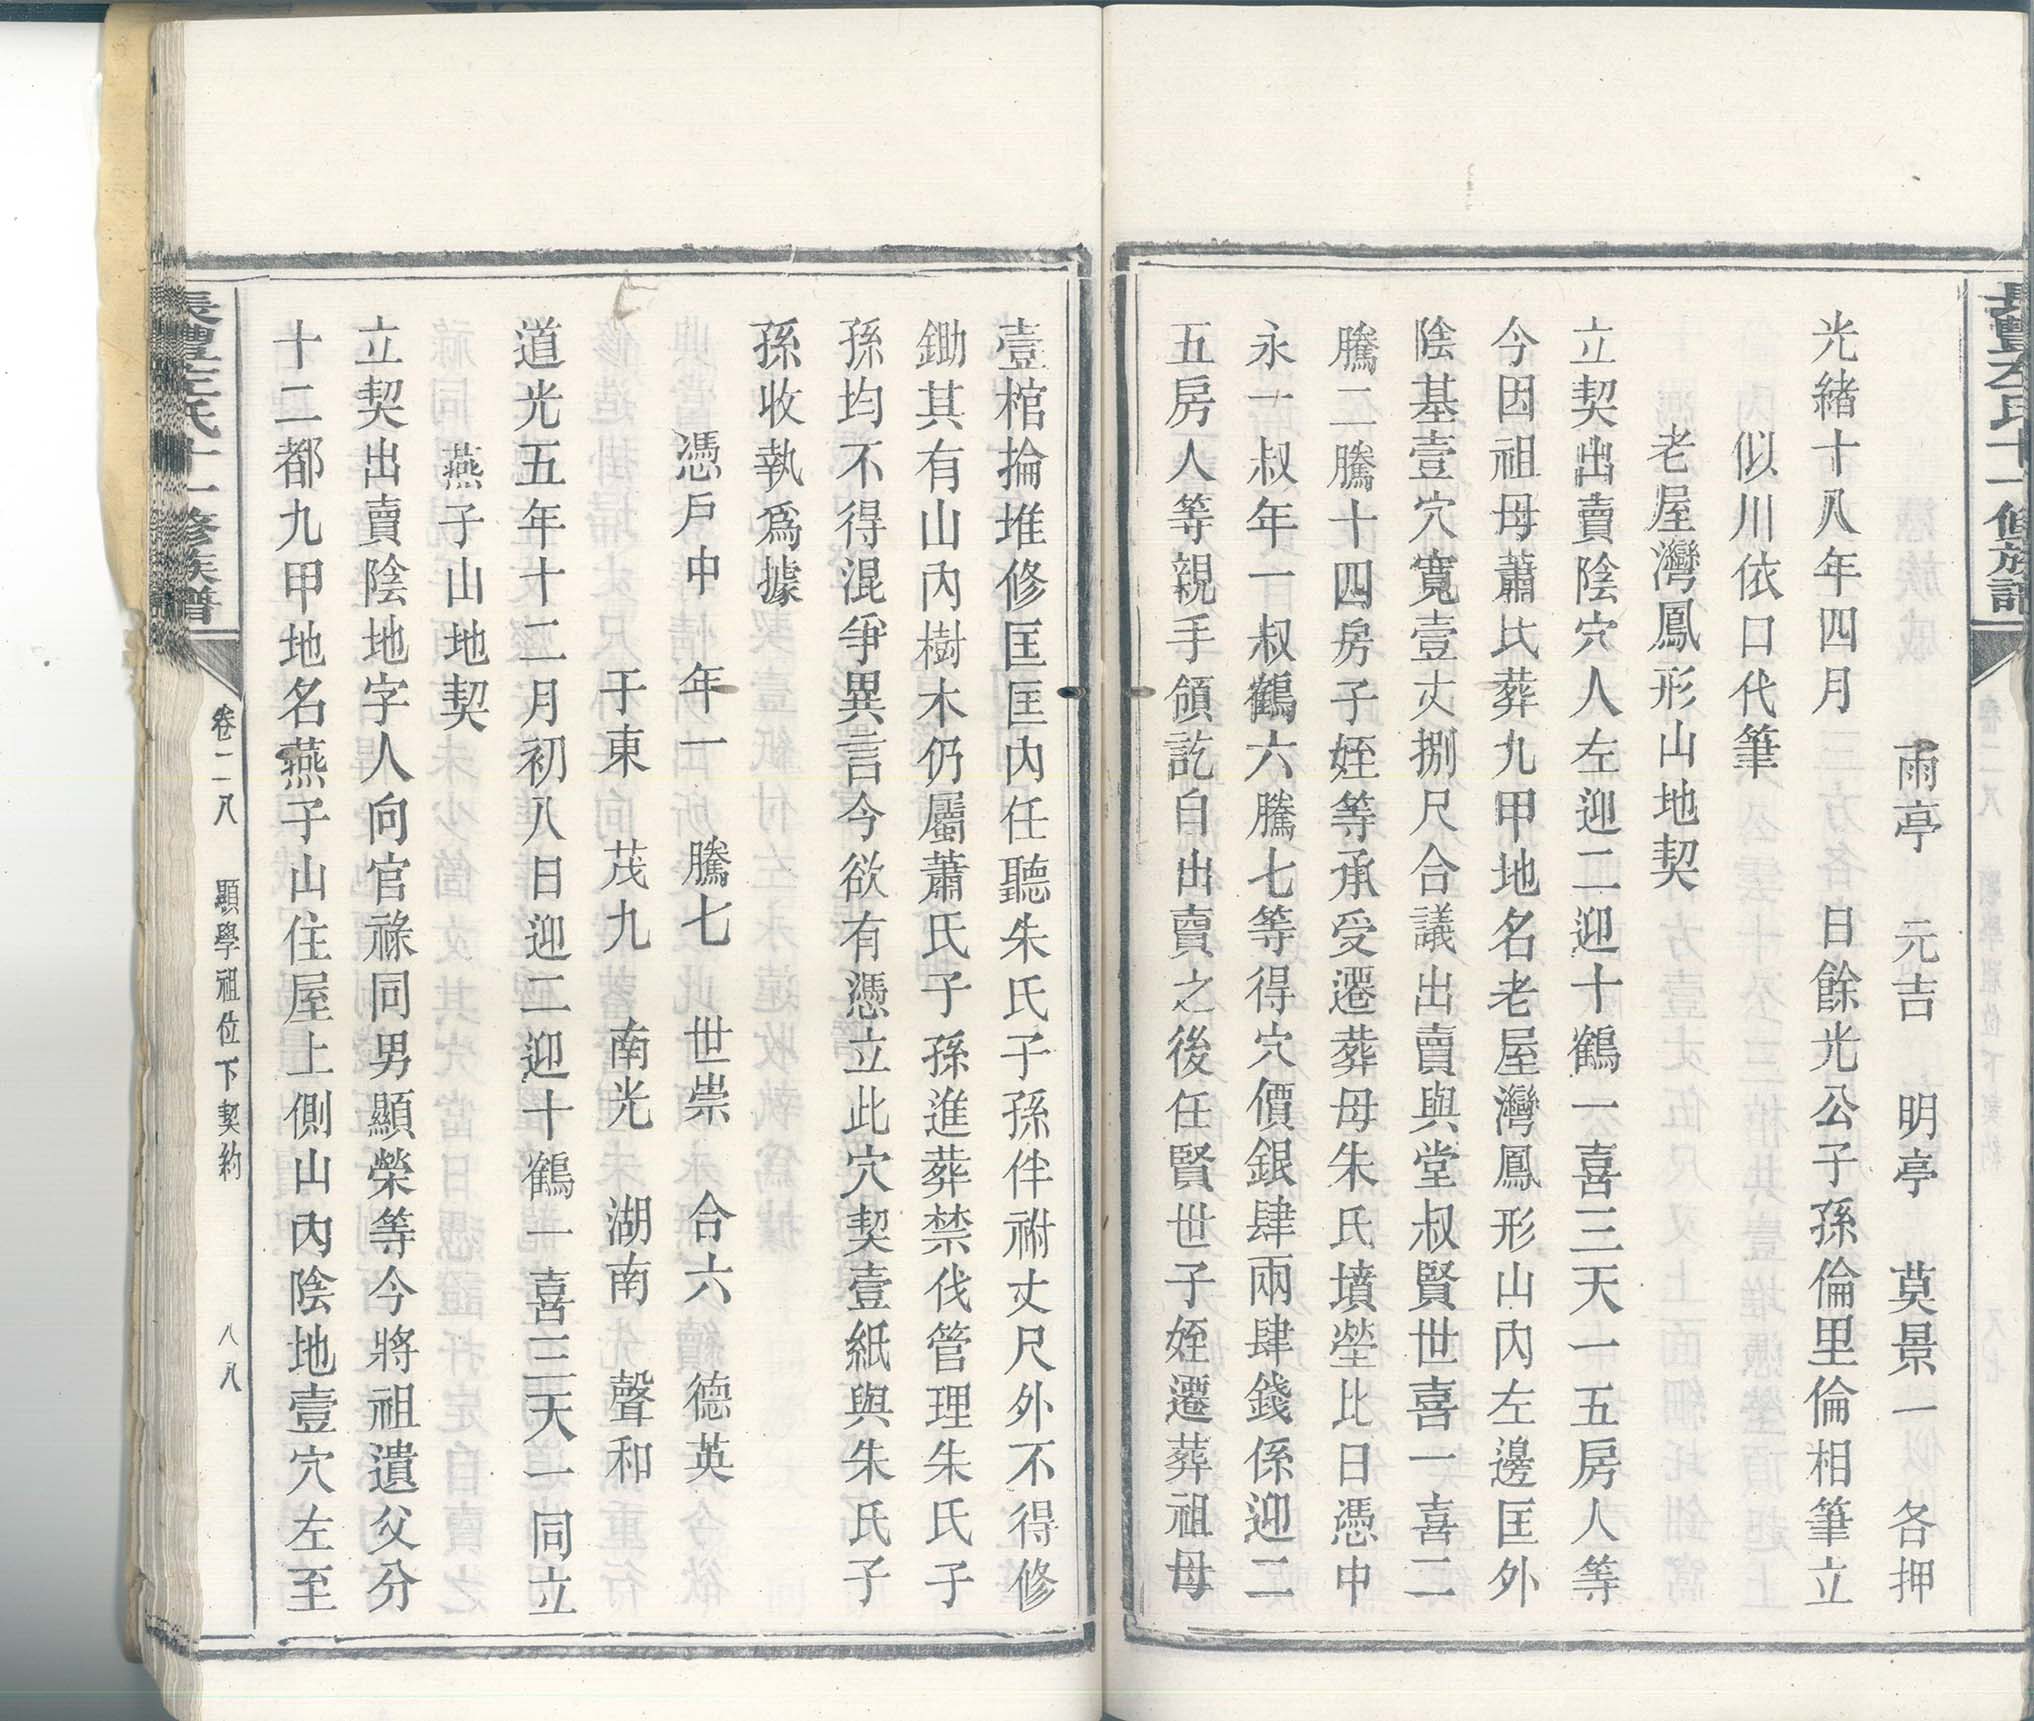 長豐左氏十一修族譜
雨亭 元吉 明亭 莫景一 各押
光緒十八年四月 日餘光公子孫倫里倫相筆立
似川依口代筆
老屋灣鳳形山地契
立契出賣陰穴人左迎二迎十鶴一喜三天一五房人等
今因祖母蕭氏葬九甲地名老屋灣鳳形山內左邊匡外
陰基壹穴寬壹丈捌尺合議出賣與堂叔賢世喜一喜二
騰二位騰十四房子姪等承受遷葬母朱氏墳塋比日憑中
永一叔年一叔鶴六騰七等得穴價銀肆兩肆錢係迎二
五房人等親手領訖自出賣之後任賢世子姪遷葬祖母
壹棺掄堆修匡匡內任聽朱氏子孫伴祔丈尺外不得修
鋤其有山內樹木仍屬蕭氏子孫進葬禁伐管理朱氏子
孫均不得混爭異言今欲有憑立此穴契壹紙與朱氏子
孫收執爲據
憑戶中 年一 騰七 世崇 合六 德英
于東 茂九 南光 湖南 聲和
道光五年十二月初八日迎二迎十鶴一喜三天一同立
燕子山地契
立契出賣陰地字人向官祿同男顯榮等今將祖遺父分
十二都九甲地名燕子山住屋上側山內陰地壹穴左至
長豐左氏十一修族譜 卷二八 顯學祖位下契約 八八